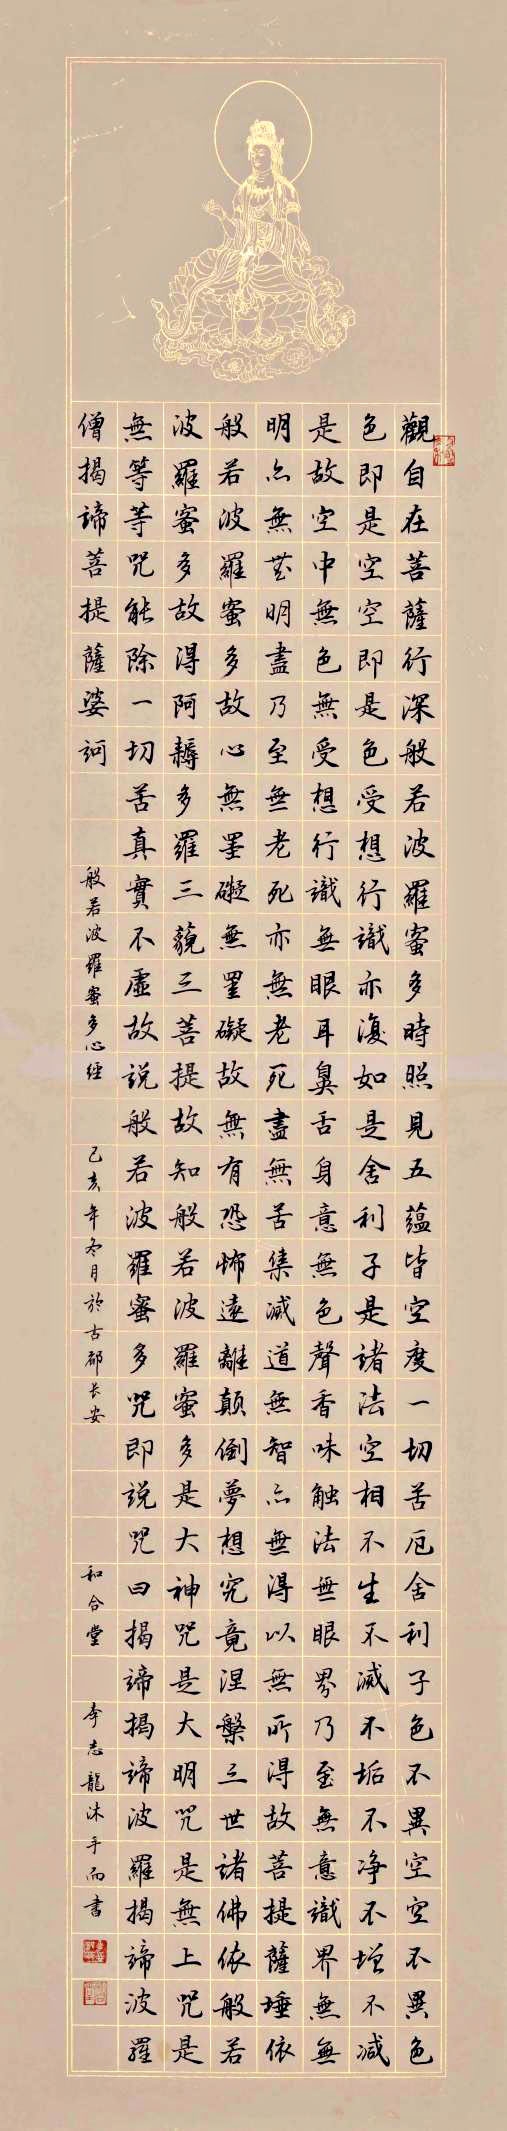 觀自在菩薩行深般若波羅蜜多時照見五蘊皆空度一切苦厄舍利子色不異空空不異色
色即是空空即是色受想行識亦復如是舍利子是諸法空相不生不滅不垢不净不增不減
是故空中無色無受想行識無眼耳鼻舌身意無色聲香味触法無眼界乃至無意識界無無
明亦無無明盡乃至無老死亦無老死盡無苦集滅道無智亦無得以無所得故菩提薩埵依
般若波羅蜜多故心無罣礙無罣礙故無有恐怖遠離顛倒夢想究竟涅槃三世諸佛依般若
波羅蜜多故得阿耨多羅三藐三菩提故知般若波羅蜜多是大神咒是大明咒是無上咒是
無等等咒能除一切苦真實不虛故說般若波羅蜜多咒即說咒曰揭諦揭諦波羅揭諦波羅
僧揭諦菩提薩婆訶
般若波羅蜜多心經 己亥年冬月於古都長安 和合堂 李志龍沐手而書